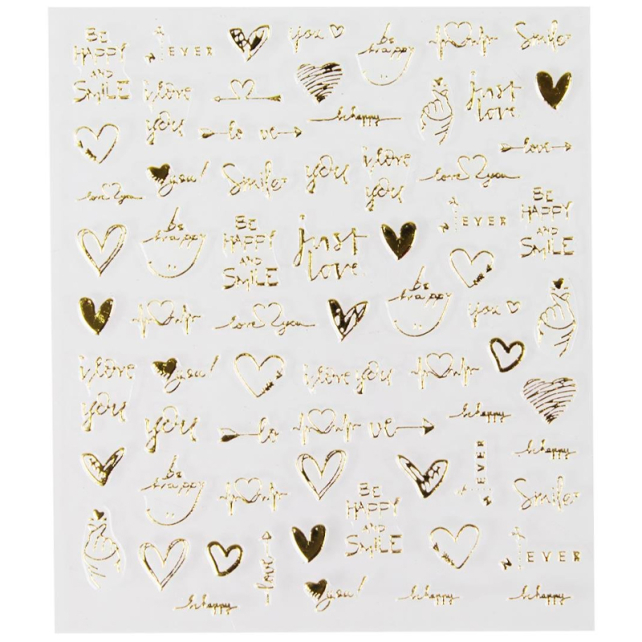 BE
HAPPY
AND
SMILE
NEVER
you
be
happy
Smile
i love
you
just
love
lo ve
be happy
love
love you
you!
Smile
you
i love
you
love you
be
happy
BE
HAPPY
AND
SMILE
just
love
NEVER
BE
HAPPY
AND
SMILE
love you
be
happy
you
i love
you
you!
i love you
you
lo ve
be happy
be happy
be
happy
BE
HAPPY
AND
SMILE
NEVER
Smile
love
NEVER
be happy
you!
be happy